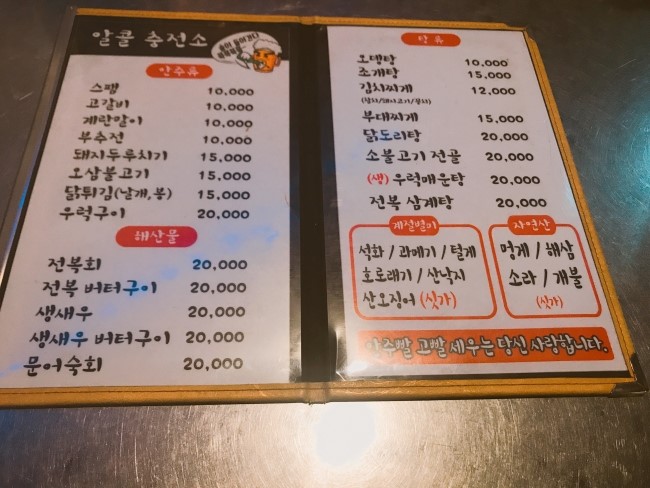 알콜 충전소
안주류
스팸 10,000
고갈비 10,000
계란말이 10,000
부추전 10,000
돼지두루치기 15,000
오삼불고기 15,000
닭튀김(날개,봉) 15,000
우럭구이 20,000
해산물
전복회 20,000
전복 버터구이 20,000
생새우 20,000
생새우 버터구이 20,000
문어숙회 20,000
탕류
오뎅탕 10,000
조개탕 15,000
김치찌개 12,000
부대찌게 15,000
닭도리탕 20,000
소불고기 전골 20,000
(생) 우럭매운탕 20,000
전복 삼계탕 20,000
계절별미
석화 / 과메기 / 털게
호로래기 / 산낙지
산오징어 (싯가)
자연산
멍게 / 해삼
소라 / 개불
(싯가)
안주빨 고빨 세우는 당신 사랑합니다.